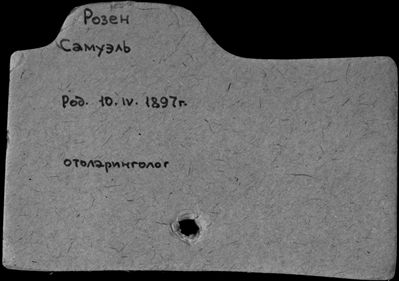 Розен
Самуэль
Род. 10.IV. 1897г.
отоларинголог